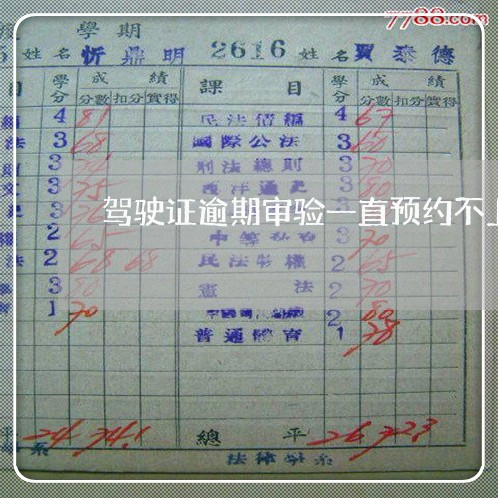 7788.com
學期
姓名 忻鼎明 2616 姓名 賈泰德
目 學分 成績 課目 學分 成績
分數 扣分 實得 分數 扣分 實得
4 81 民法債編 4 67
法 3 68 國際公法 3 60
3 刑法總則 3 70
3 75 西洋通史 3 80
驾驶证逾期审验一直预约不
2 65 3 70
法 2 68 68 民法物權 2 65
3 80 憲法 2 70
1 70 2 80
普通體育 1 78
平 24 74.1 總平 26 72.3
系 法律學系